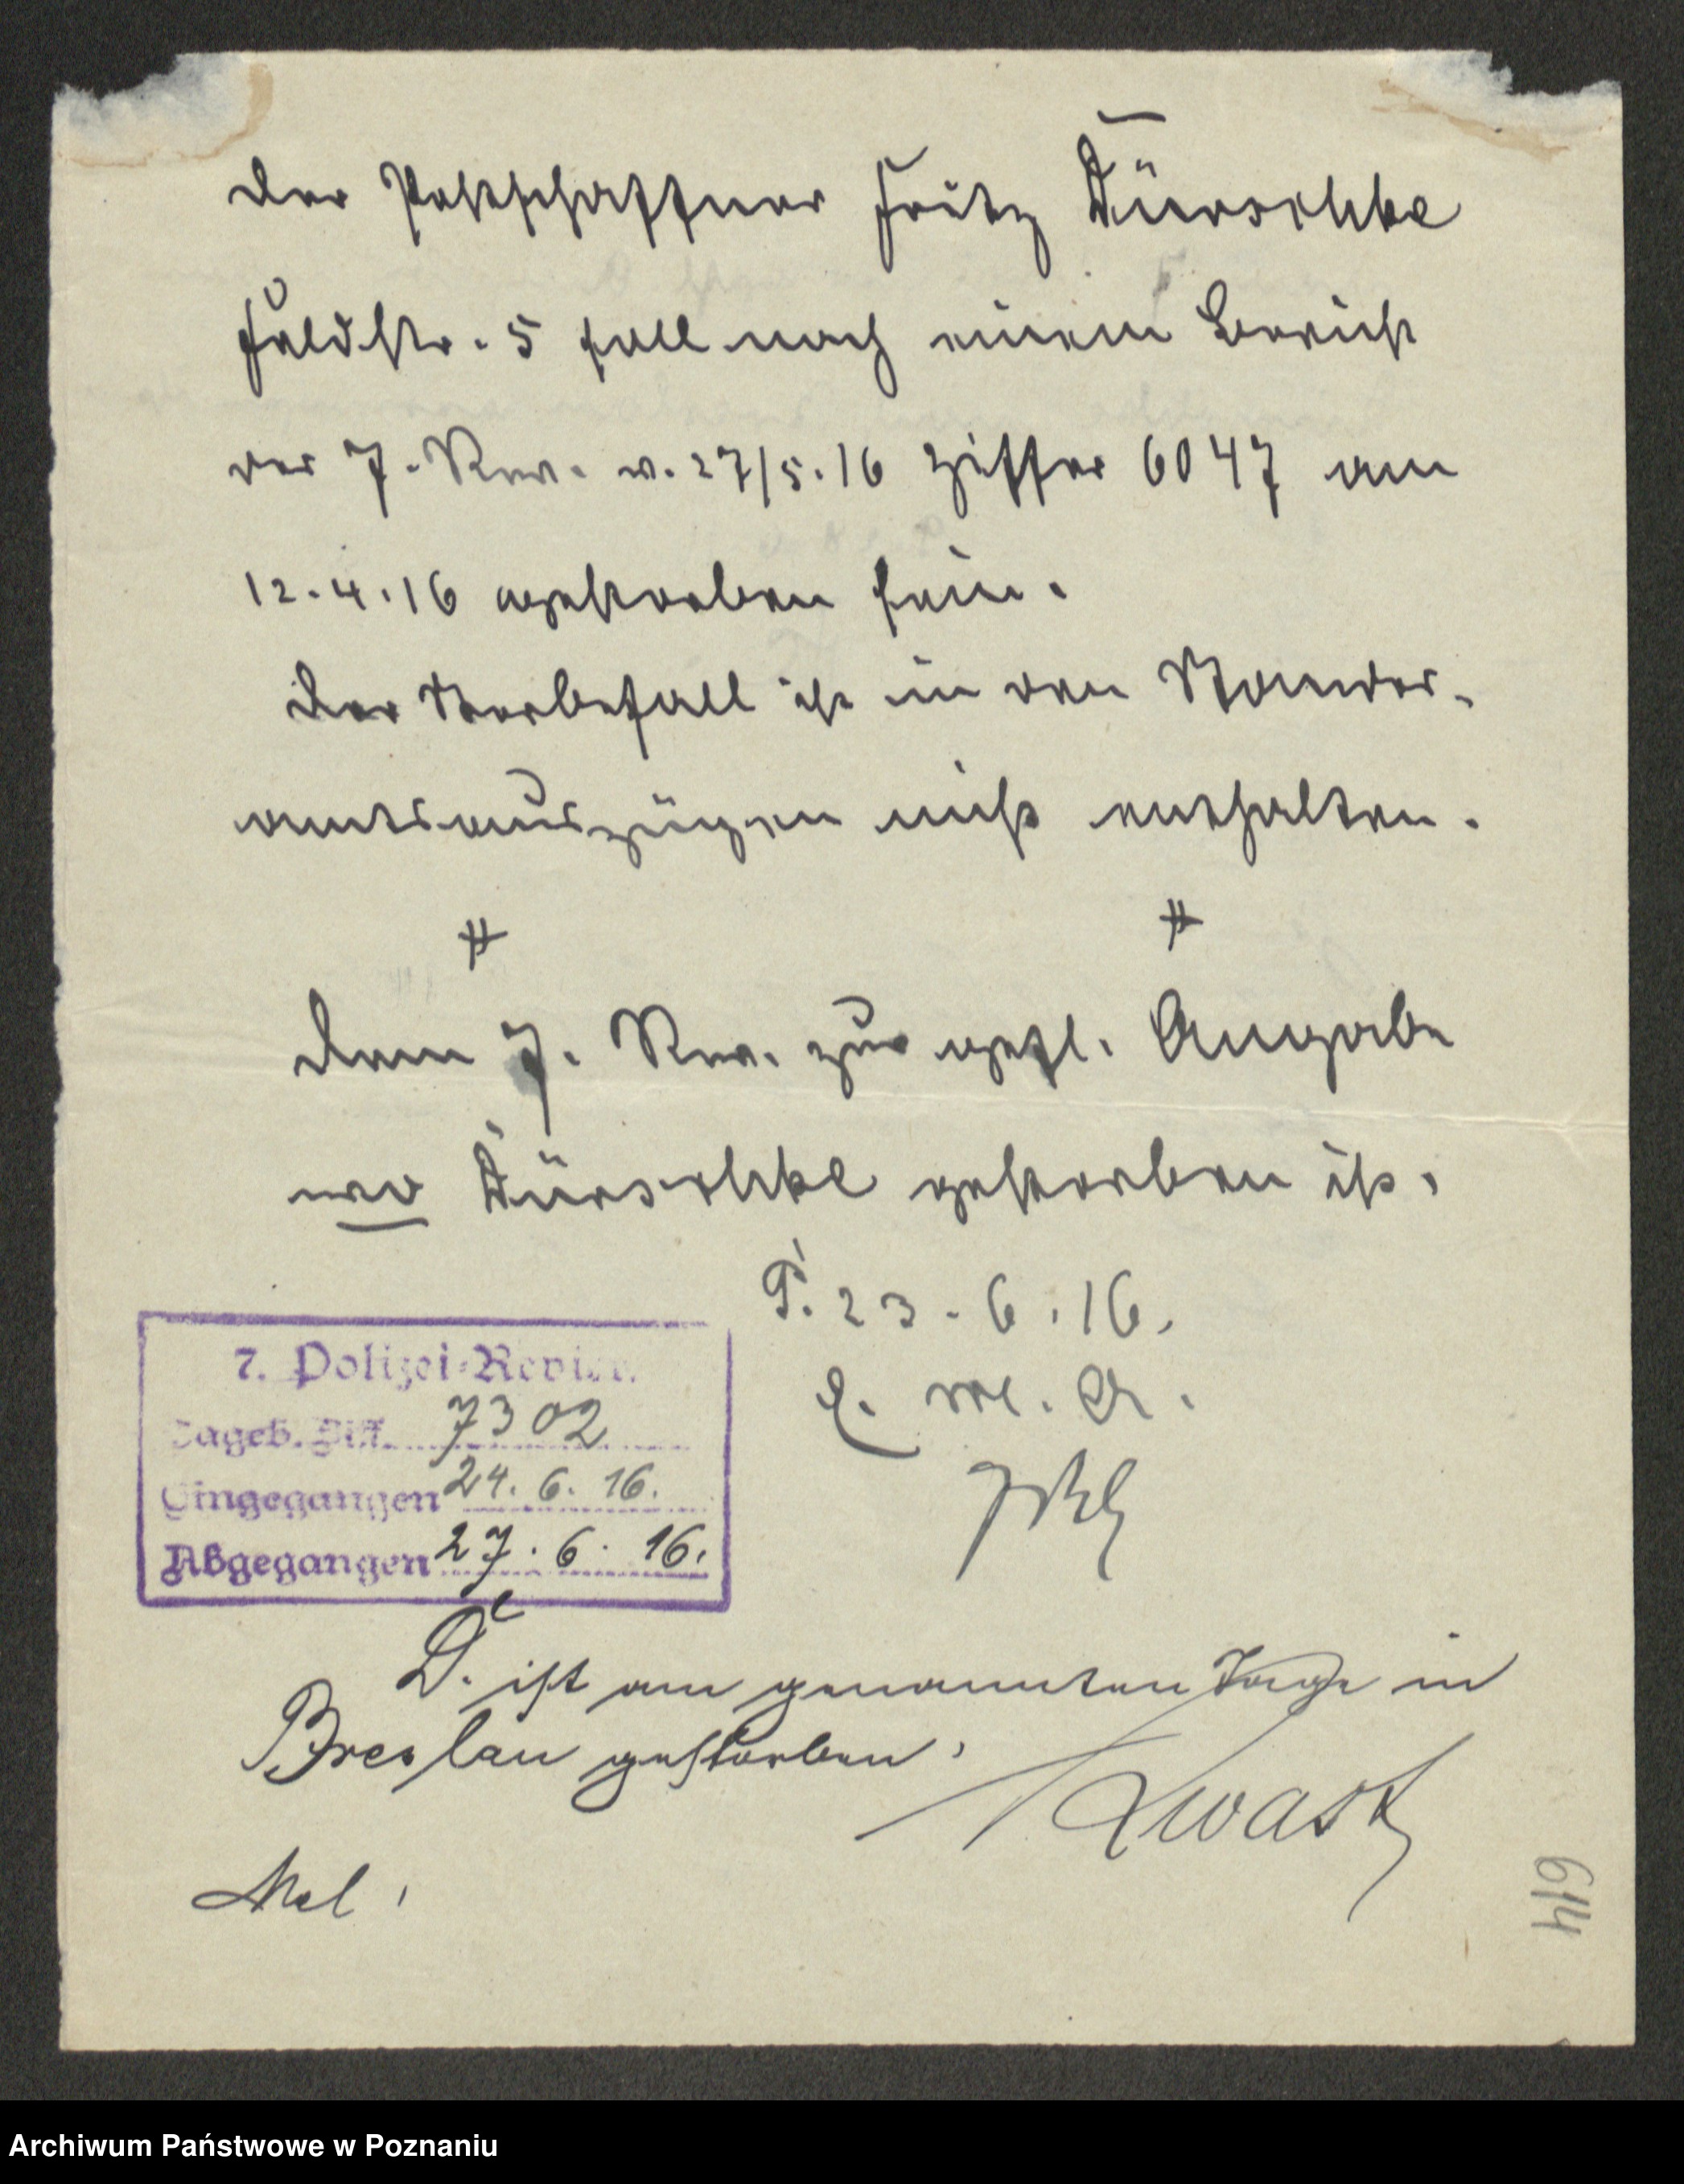 Der Postschaffner Fritz Dürschke
Feldstr. 5 soll nach einem Bericht
des 7. Rev. v. 27/5.16 Ziffer 6047 am
12.4.16 gestorben sein.
Der Sterbefall ist in den Standes-
amtsauszügen nicht enthalten.
#
#
Dem 7. Rev. zur gefl. Angabe
wo Dürschke gestorben ist.
P. 23.6.16.
E. M. A.
7. Polizei-Revier.
Tageb. Ziff. 7302
Eingegangen 24. 6. 16.
Abgegangen 27. 6. 16.
D. ist am genannten Tage in
Breslau gestorben.
Kwast
614
Archiwum Państwowe w Poznaniu